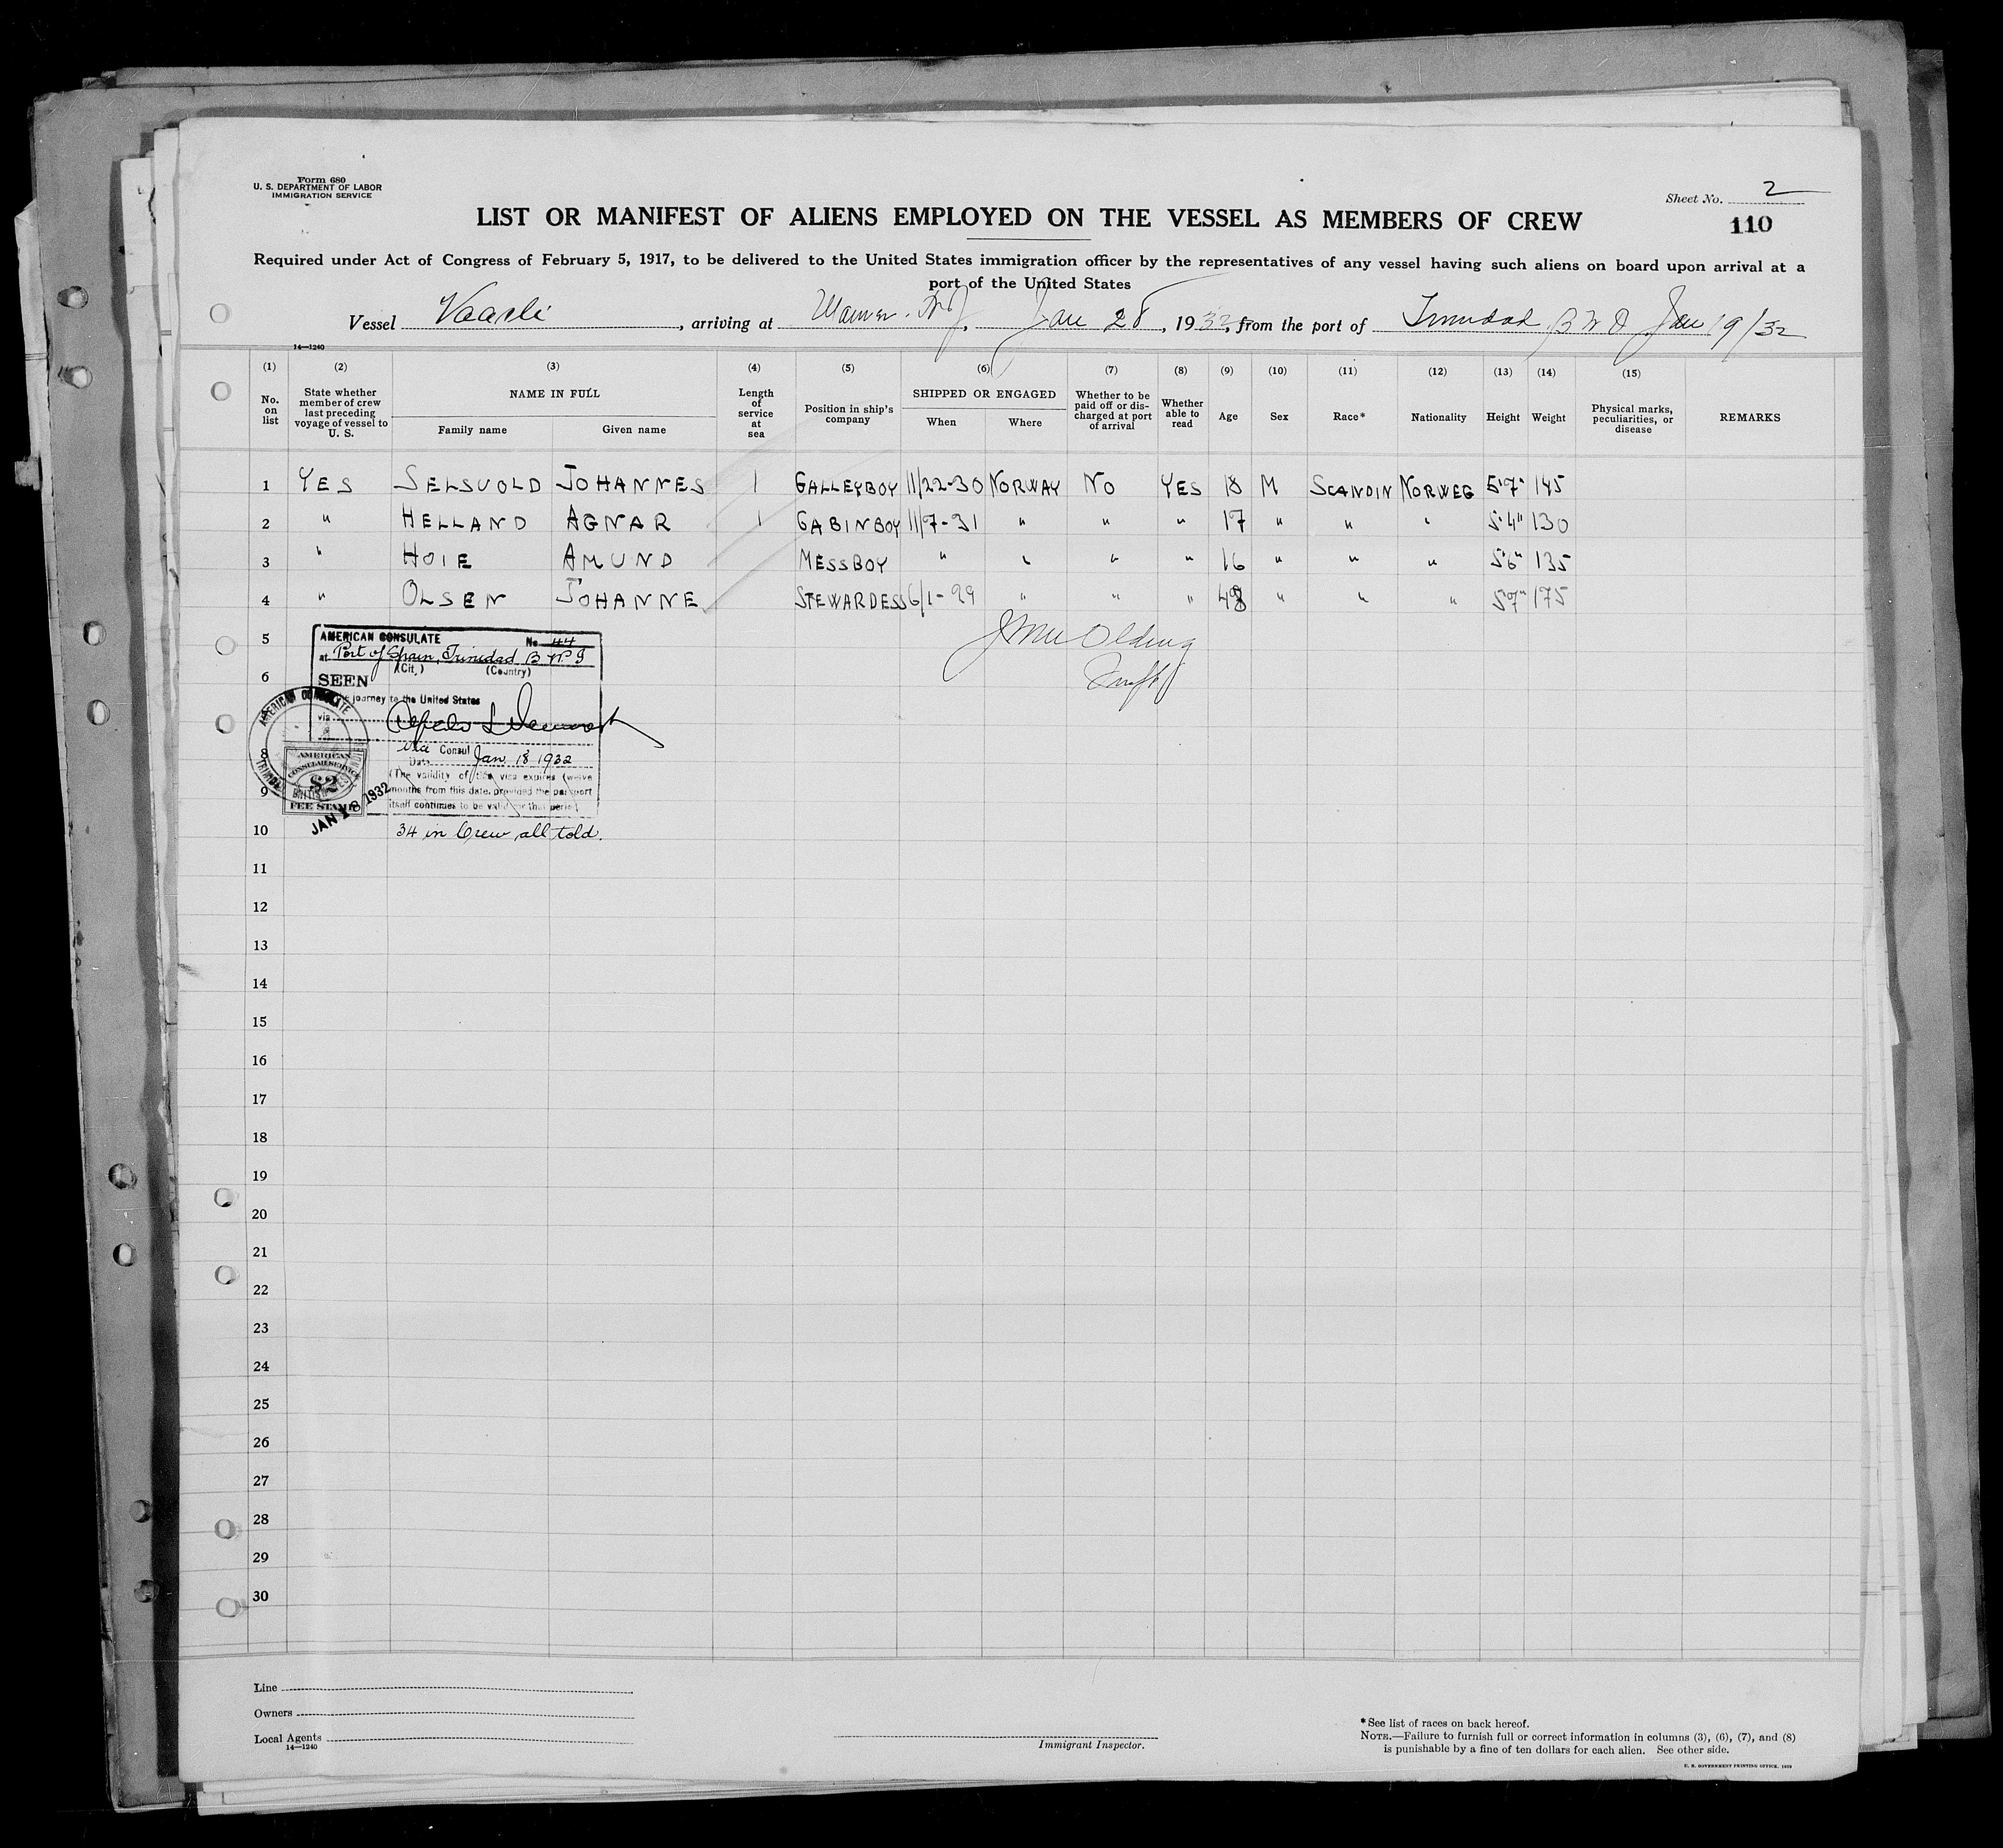 Form 680
U. S. DEPARTMENT OF LABOR
IMMIGRATION SERVICE
Sheet No. 2
110
LIST OR MANIFEST OF ALIENS EMPLOYED ON THE VESSEL AS MEMBERS OF CREW
Required under Act of Congress of February 5, 1917, to be delivered to the United States immigration officer by the representatives of any vessel having such aliens on board upon arrival at a
port of the United States
Vessel Vaarli, arriving at Warner. N.J., Jan 28, 1932, from the port of Trinidad, B W I Jan 19/32
14—1240
(1) (2) (3) (4) (5) (6) (7) (8) (9) (10) (11) (12) (13) (14) (15)
No. on list
State whether member of crew last preceding voyage of vessel to U. S.
NAME IN FULL
Family name
Given name
Length of service at sea
Position in ship's company
SHIPPED OR ENGAGED
When
Where
Whether to be paid off or discharged at port of arrival
Whether able to read
Age
Sex
Race*
Nationality
Height
Weight
Physical marks, peculiarities, or disease
REMARKS
1 YES SELSVOLD JOHANNES 1 GALLEYBOY 11/22-30 NORWAY NO YES 18 M SCANDIN NORWEG 5'7" 145
2 " HELLAND AGNAR 1 CABINBOY 11/7-31 " " " 17 " " " 5'4" 130
3 " HOIE AMUND MESSBOY " " " " 16 " " " 5'6" 135
4 " OLSEN JOHANNE STEWARDESS 6/1-29 " " " 48 " " " 5'7" 175
5
6
8
9
10
AMERICAN CONSULATE No 44
at Port of Spain, Trinidad B W I
(City) (Country)
SEEN
journey to the United States
via
Vice Consul
Date Jan. 18 1932
(The validity of this visa expires twelve
months from this date, provided the passport
itself continues to be valid for that period.
AMERICAN CONSULATE
TRINIDAD
AMERICAN
CONSULAR SERVICE
$2
FEE STAMP
JAN 18 1932
34 in Crew, all told.
11
12
13
14
15
16
17
18
19
20
21
22
23
24
25
26
27
28
29
30
Line
Owners
Local Agents
14—1240
Immigrant Inspector.
*See list of races on back hereof.
NOTE.—Failure to furnish full or correct information in columns (3), (6), (7), and (8)
is punishable by a fine of ten dollars for each alien. See other side.
U. S. GOVERNMENT PRINTING OFFICE.